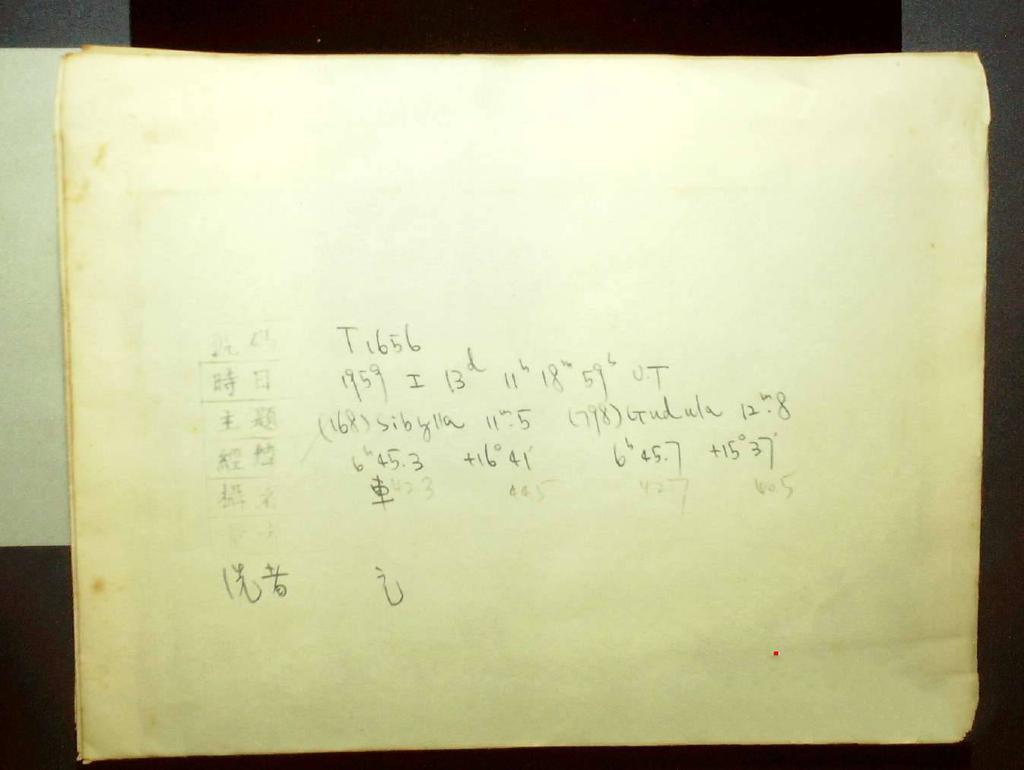 號碼 T1656
時日 1959 I 13ᵈ 11ʰ 18ᵐ 59ˢ U.T
主題 (168) Sibylla 11ᵐ.5 (798) Gudula 12ᵐ.8
經緯 6ʰ45.3 +16°41′ 6ʰ45.7 +15°37′
攝者 車 42.3 44.5 42.7 40.5
洗者